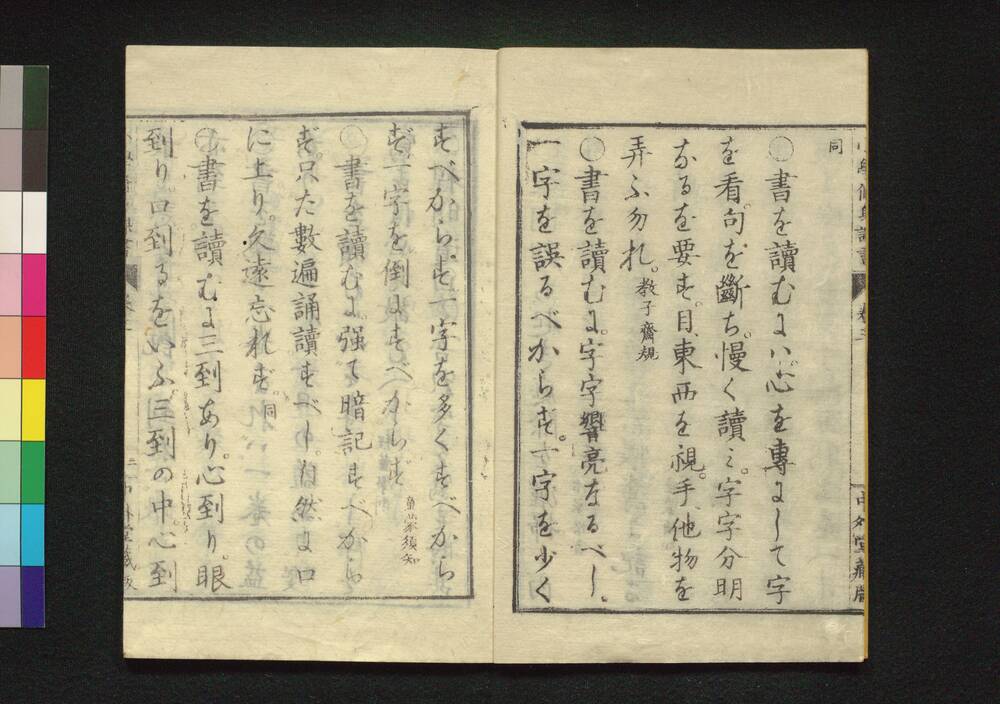 同
○書を讀むにハ。心を專にして字
を看。句を斷ち。慢く讀ミ。字字分明
なるを要す。目、東西を視。手、他物を
弄ふ勿れ。教子齋規
○書を讀むに。字字響亮なるべし。
一字を誤るべからず。一字を少く
すべからず。一字を多くすべから
ず。一字を倒にすべからず 童蒙須知
○書を讀むに。强て暗記すべから
ず。只た數遍誦讀すべし。自然に口
に上り。久遠忘れず。同
○書を讀むに三到あり。心到り。眼
到り。口到るをいふ。三到の中。心到
小學修身訓 卷上
中外堂藏版